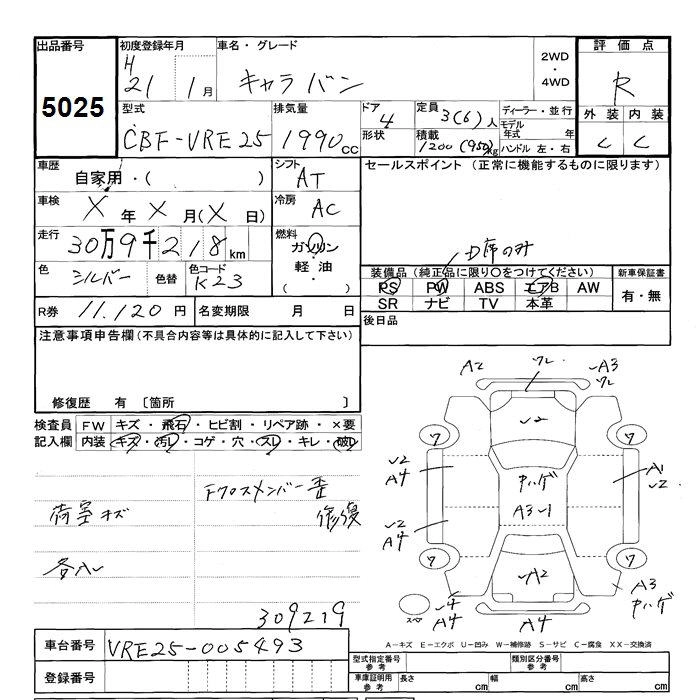 出品番号 初度登録年月 車名・グレード 2WD・4WD 評価点
5025 H 21 1月 キャラバン R
型式 排気量 ドア 4 定員 3(6)人 ディーラー・並行 外装 内装
CBF-VRE25 1990cc 形状 積載 1200(950)kg モデル年式 年 ハンドル 左・右 C C
車歴 自家用・( ) シフト AT セールスポイント (正常に機能するものに限ります)
車検 X年X月(X日) 冷房 AC
走行 30万9千218km 燃料 ガソリン・軽油・( )
D席のみ
色 シルバー 色替 色コード K23
装備品 (純正品に限り○をつけてください) 新車保証書
PS PW ABS エアB AW 有・無
SR ナビ TV 本革
R券 11.120円 名変期限 月 日 後日品
注意事項申告欄(不具合内容等は具体的に記入して下さい)
修復歴 有 〔箇所 〕
検査員記入欄 FW キズ・飛石・ヒビ割・リペア跡・×要
内装 キズ・汚レ・コゲ・穴・スレ・キレ・破レ
荷室キズ
修復
309219
A2 ワレ A3 ワレ
ワ ワ
A4 A3 A1
A4
ワ ワ
A2 A3
A4 A4
A-キズ E-エクボ U-凹み W-補修跡 S-サビ C-腐食 XX-交換済
車台番号 VRE25-005493
登録番号
型式指定番号 参考 類別区分番号 参考
車庫証明用 参考 長さ cm 幅 cm 高さ cm